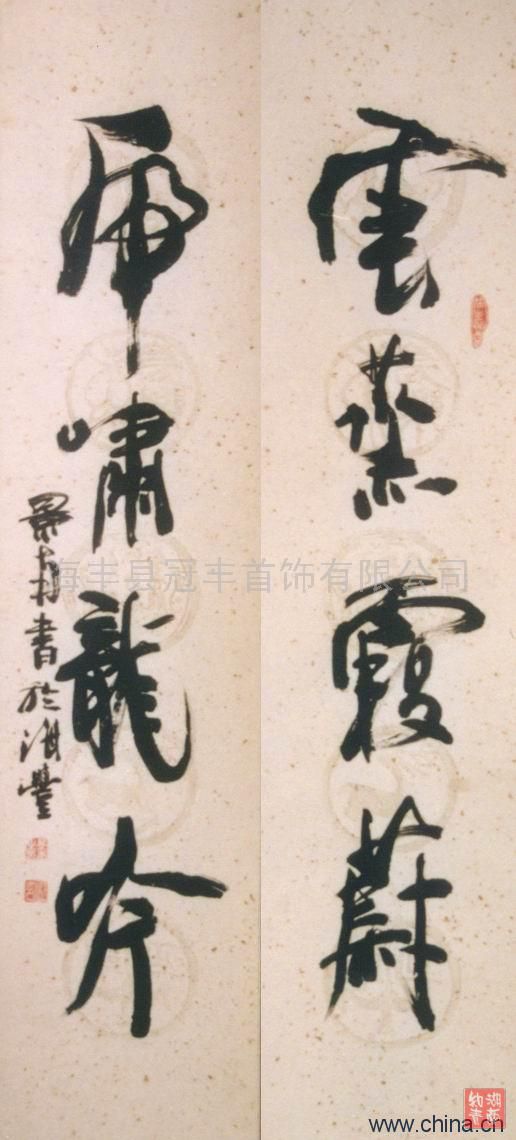 雲蒸霞蔚
虎嘯龍吟
景南書於海豐
海丰县冠丰首饰有限公司
www.china.cn